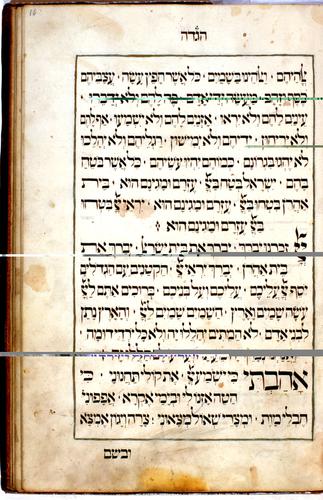 16
הגדה
אלהיהם · ואלהינו בשמים · כל אשר חפץ עשה · עצביהם
כסף וזהב · מעשה ידי אדם · פה להם ולא ידברו ·
עינים להם ולא יראו · אזנים להם ולא ישמעו · אף להם
ולא יריחון · ידיהם ולא ימישון · רגליהם ולא יהלכו
לא יהגו בגרונם · כמוהם יהיו עושיהם · כל אשר בטח
בהם · ישראל בטח ביי עזרם ומגינם הוא · בית
אהרן בטחו ביי · עזרם ומגינם הוא · יראי יי בטחו
ביי עזרם ומגינם הוא
יי זכרנו יברך · יברך את בית ישראל · יברך את
בית אהרן · יברך יראי יי · הקטנים עם הגדלים
יסף יי עליכם · עליכם ועל בניכם · ברוכים אתם ליי
עשה שמים וארץ · השמים שמים ליי · והארץ נתן
לבני אדם · לא המתים יהללו יה ולא כל ירדי דומה ·
אהבתי כי ישמע יי את קולי תחנוני · כי
הטה אזנו לי ובימי אקרא · אפפוני
חבלי מות · ומצרי שאול מצאוני · צרה ויגון אמצא
ובשם